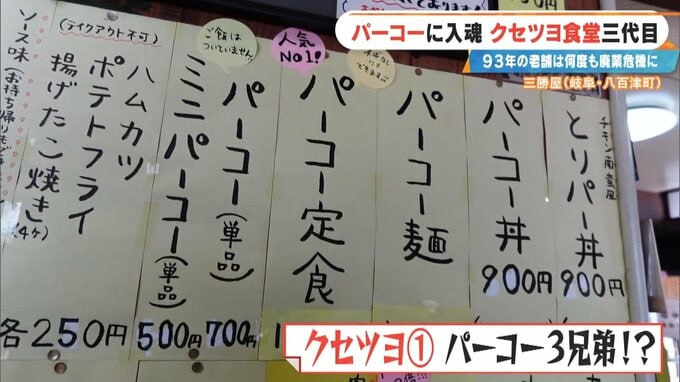 パーコーに入魂 クセツヨ食堂三代目
93年の老舗は何度も廃業危機に
三勝屋(岐阜・八百津町)
チキン南蛮風
とりパー丼
900円
パーコー丼
900円
パーコー麺
人気
No.1!
パーコー定食
ご飯は
ついていません!!
パーコー(単品)
700円
ミニパーコー(単品)
500円
(テイクアウト不可)
ハムカツ
ポテトフライ
揚げたこ焼き(4ケ)
各250円
ソース味(お持ち帰り
クセツヨ① パーコー3兄弟!?